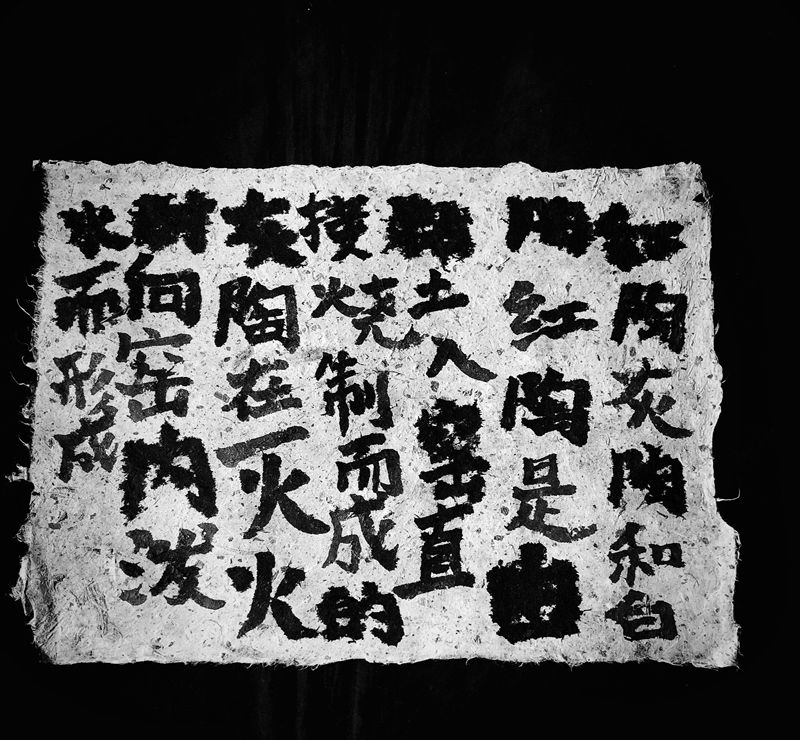 红陶灰陶和白
陶红陶是由
黏土入窑直
接火烧制而成的
灰陶在灭火
时向窑内泼
水而形成